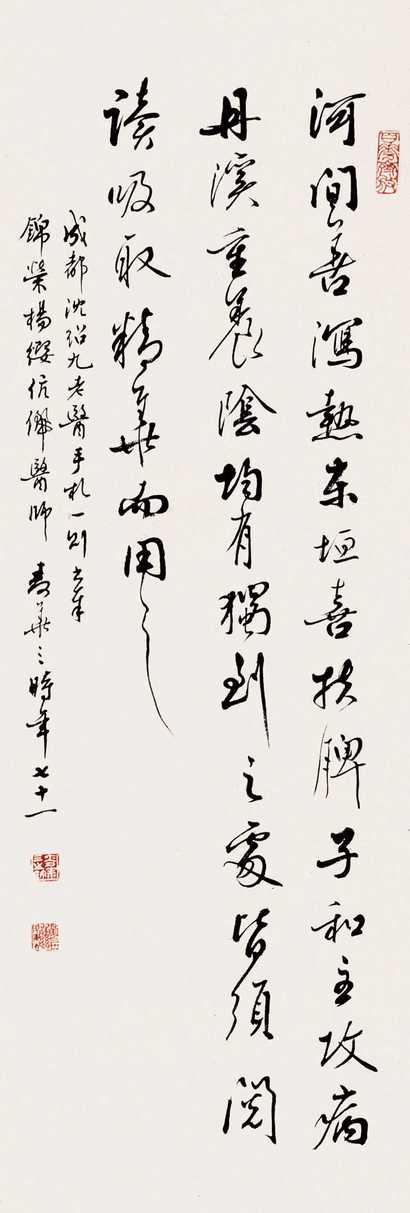 河間善瀉熱東垣喜扶脾子和主攻病
丹溪重養陰均有獨到之處皆須閱
讀吸取精華而用之
成都沈紹九老醫手札一則書奉
錦榮楊纓伉儷醫師 壽華之時年七十一